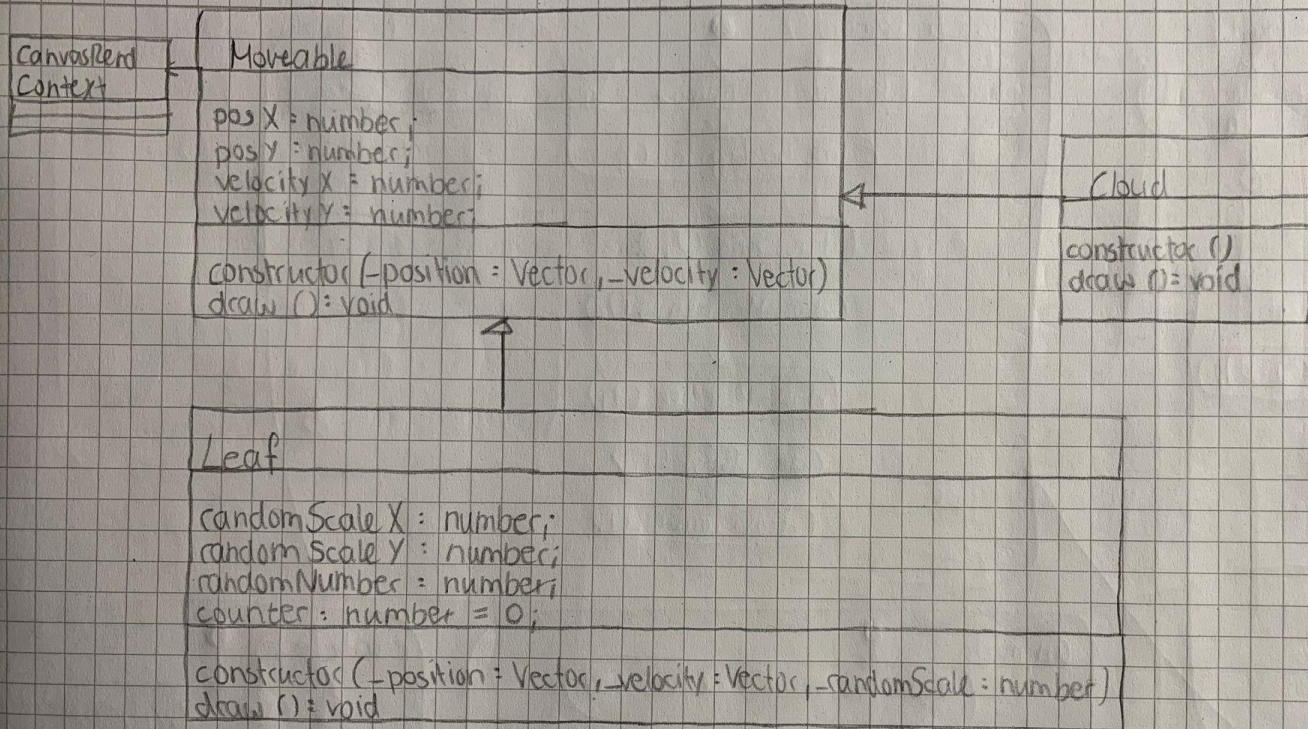 CanvasRend
Context
Moveable
posX : number;
posY : number;
velocityX : number;
velocityY : number;
constructor(_position : Vector, _velocity : Vector)
draw () : void
Cloud
constructor ()
draw () : void
Leaf
randomScaleX : number;
randomScaleY : number;
randomNumber : number;
counter : number = 0;
constructor (_position : Vector, _velocity : Vector, _randomScale : number)
draw () : void